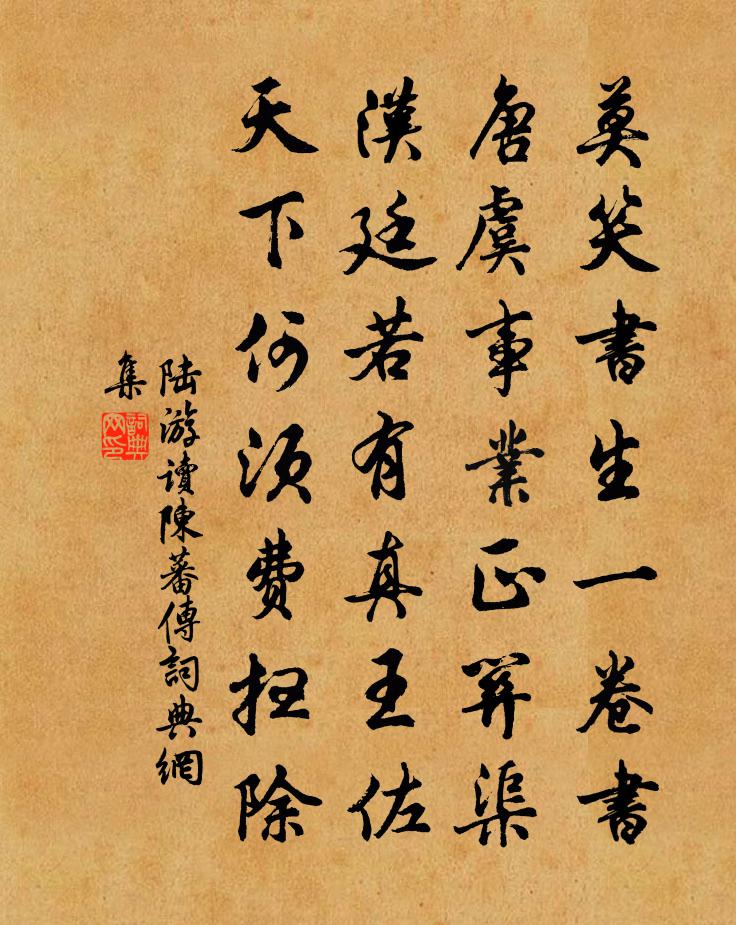 莫笑書生一卷書
唐虞事業正關渠
漢廷若有真王佐
天下何須費扫除
陆游讀陳蕃傳詞典網
集
詞典
网印